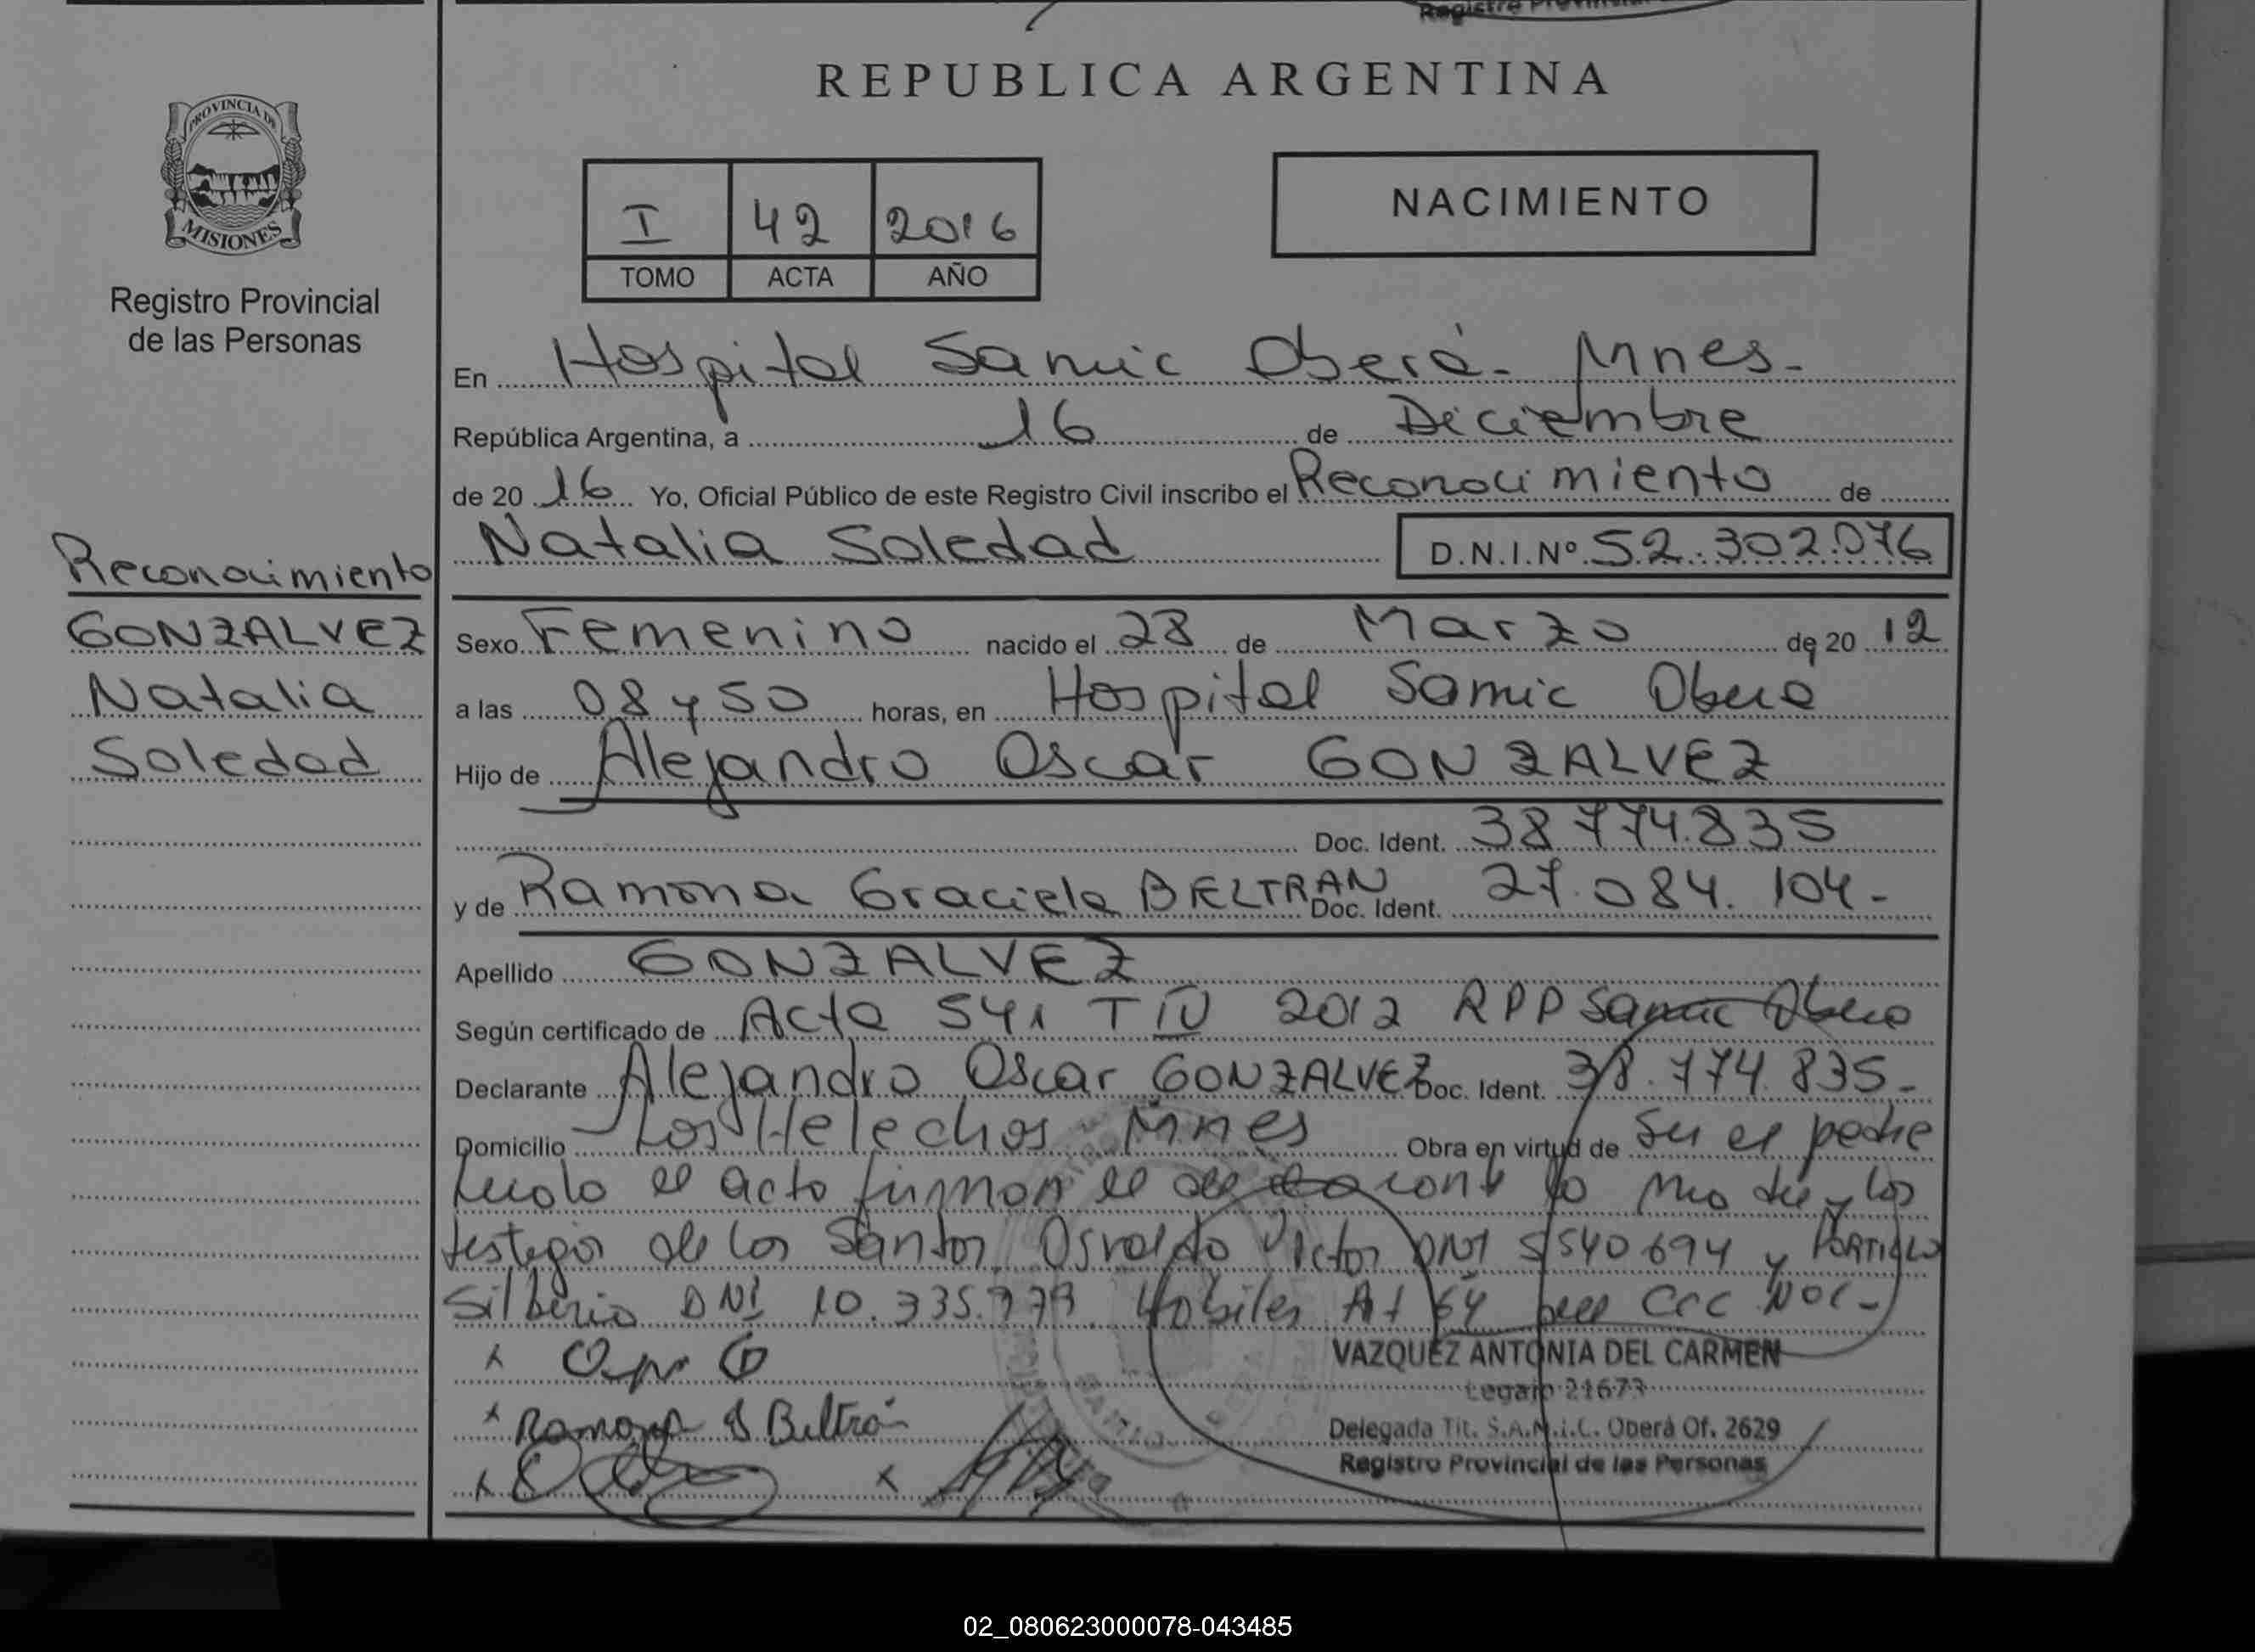 REPUBLICA ARGENTINA
PROVINCIA DE
MISIONES
Registro Provincial
de las Personas
NACIMIENTO
I 42 2016
TOMO ACTA AÑO
En Hospital Samic Oberá - Mnes -
República Argentina, a 16 de Diciembre
de 20 16 Yo, Oficial Público de este Registro Civil inscribo el Reconocimiento de
Natalia Soledad D.N.I.Nº 52.302.076
Reconocimiento
GONZALVEZ
Natalia
Soledad
Sexo Femenino nacido el 28 de Marzo de 20 12
a las 08 y 50 horas, en Hospital Samic Obera
Hijo de Alejandro Oscar GONZALVEZ
Doc. Ident. 38 774.835
y de Ramona Graciela BELTRAN Doc. Ident. 27.084.104 -
Apellido GONZALVEZ
Según certificado de Acta 541 T IV 2012 RPP Samic Obera
Declarante Alejandro Oscar GONZALVEZ Doc. Ident. 38.774.835 -
Domicilio Los Helechos - Mnes Obra en virtud de Ser el padre
el acto firman el y los
testigos de los Santos Osvaldo Victor DNI y PORTILLO
Silberio DNI Habiles Art
Ramona G Beltrán
VAZQUEZ ANTONIA DEL CARMEN
Legajo 21673
Delegada Tit. S.A.M.i.C. Oberá Of. 2629
Registro Provincial de las Personas
02_080623000078-043485